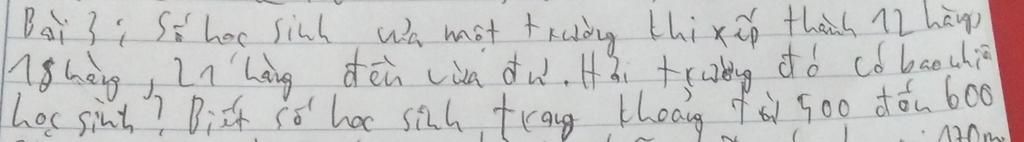 Bài 3: Số học sinh của một trường khi xếp thành 12 hàng,
18 hàng, 21 hàng đều vừa đủ. Hỏi trường đó có bao nhiê
học sinh? Biết số học sinh trong khoảng từ 500 đến 600
170m